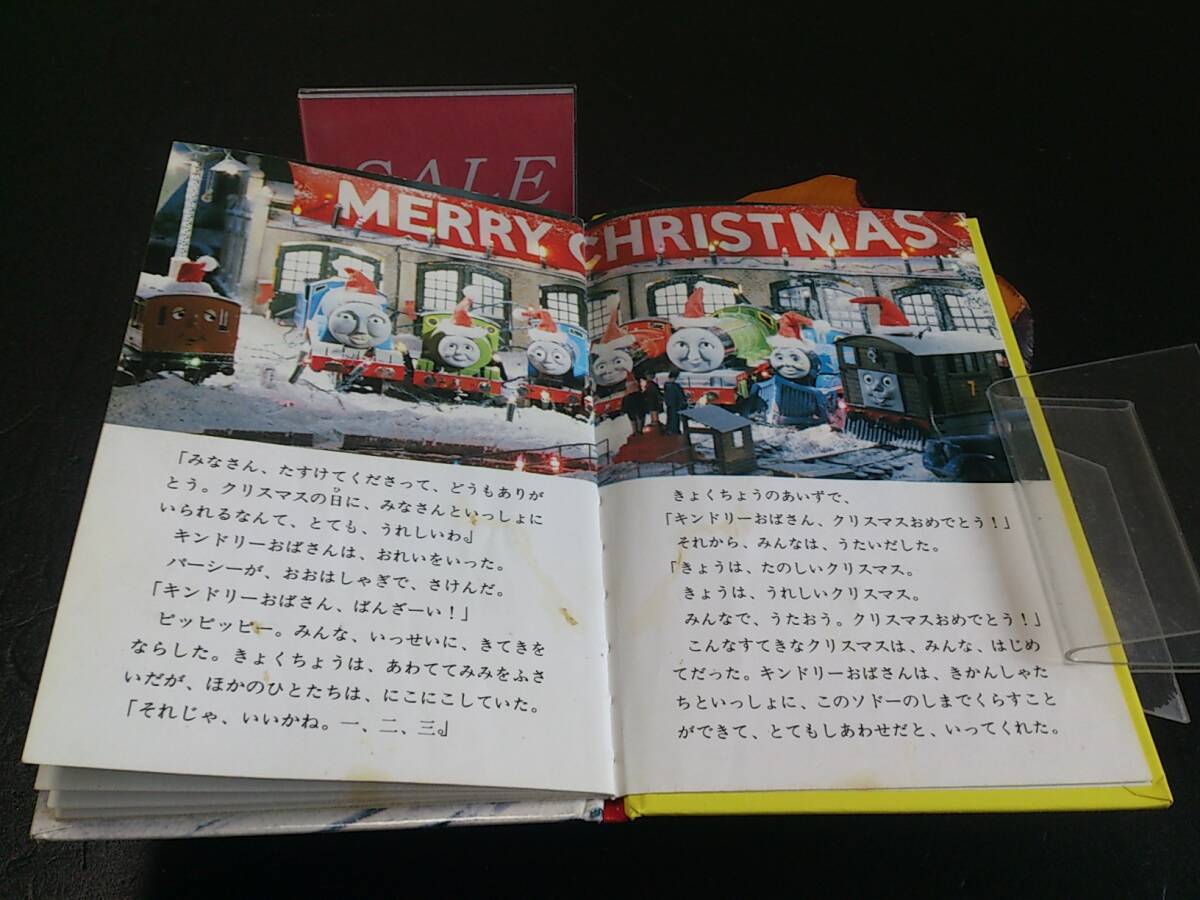 SALE
MERRY CHRISTMAS
「みなさん、たすけてくださって、どうもありが
とう。クリスマスの日に、みなさんといっしょに
いられるなんて、とても、うれしいわ。」
キンドリーおばさんは、おれいをいった。
パーシーが、おおはしゃぎで、さけんだ。
「キンドリーおばさん、ばんざーい！」
ピッピッピー。みんな、いっせいに、きてきを
ならした。きょくちょうは、あわててみみをふさ
いだが、ほかのひとたちは、にこにこしていた。
「それじゃ、いいかね。一、二、三。」
きょくちょうのあいずで、
「キンドリーおばさん、クリスマスおめでとう！」
それから、みんなは、うたいだした。
「きょうは、たのしいクリスマス。
きょうは、うれしいクリスマス。
みんなで、うたおう。クリスマスおめでとう！」
こんなすてきなクリスマスは、みんな、はじめ
てだった。キンドリーおばさんは、きかんしゃた
ちといっしょに、このソドーのしまでくらすこと
ができて、とてもしあわせだと、いってくれた。
7